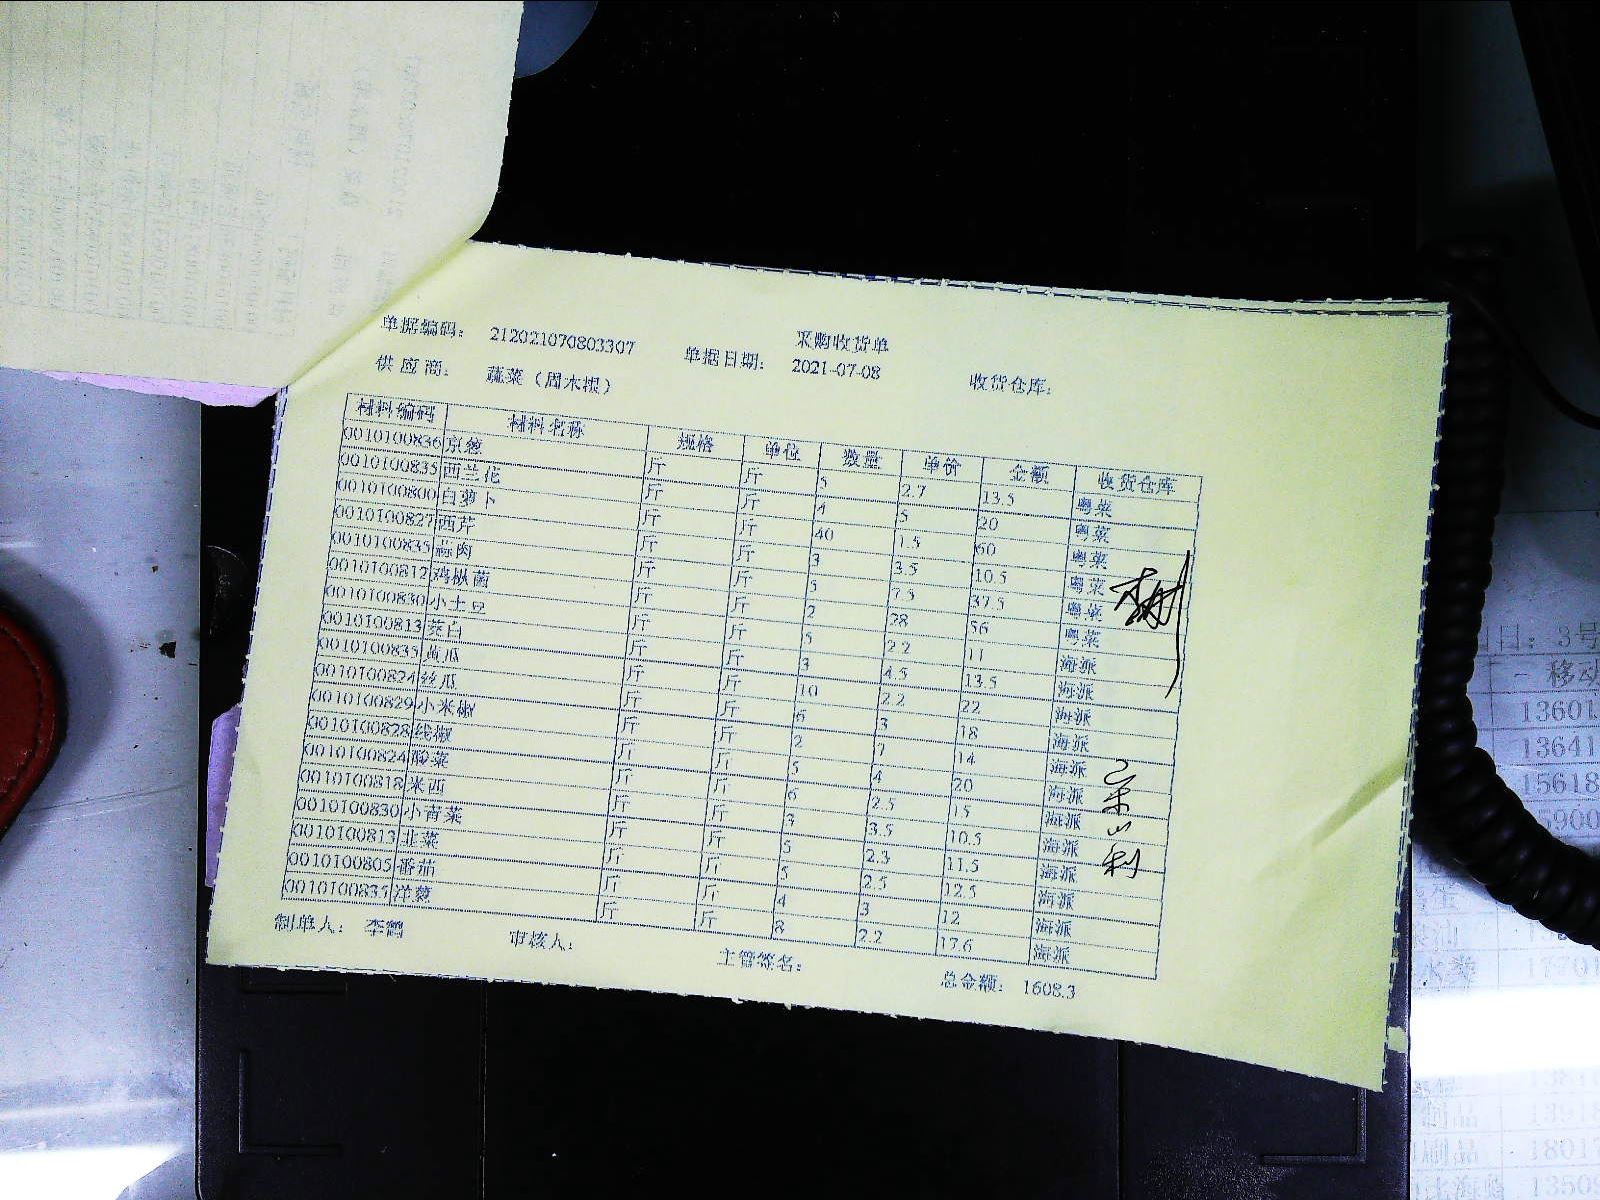 采购收货单
单据编码： 212021070803307 单据日期： 2021-07-08 收货仓库：
供应商： 蔬菜（周木根）
材料编码 材料名称 规格 单位 数量 单价 金额 收货仓库
0010100836 京葱 斤 斤 5 2.7 13.5 粤菜
0010100835 西兰花 斤 斤 4 5 20 粤菜
0010100800 白萝卜 斤 斤 40 1.5 60 粤菜
0010100827 西芹 斤 斤 3 3.5 10.5 粤菜
0010100835 蒜肉 斤 斤 5 7.5 37.5 粤菜
0010100812 鸡枞菌 斤 斤 2 28 56 粤菜
0010100830 小土豆 斤 斤 5 2.2 11 海派
0010100813 茭白 斤 斤 3 4.5 13.5 海派
0010100835 黄瓜 斤 斤 10 2.2 22 海派
0010100824 丝瓜 斤 斤 6 3 18 海派
0010100829 小米椒 斤 斤 2 7 14 海派
0010100828 线椒 斤 斤 5 4 20 海派
0010100824 酸菜 斤 斤 6 2.5 15 海派
0010100818 米西 斤 斤 3 3.5 10.5 海派
0010100830 小青菜 斤 斤 5 2.3 11.5 海派
0010100813 韭菜 斤 斤 5 2.5 12.5 海派
0010100805 番茄 斤 斤 4 3 12 海派
0010100835 洋葱 斤 斤 8 2.2 17.6 海派
制单人： 李鹤 审核人： 主管签名： 总金额： 1608.3
日：3号
移动
13601
13641
15618
5900
1770
1391
1801
13509